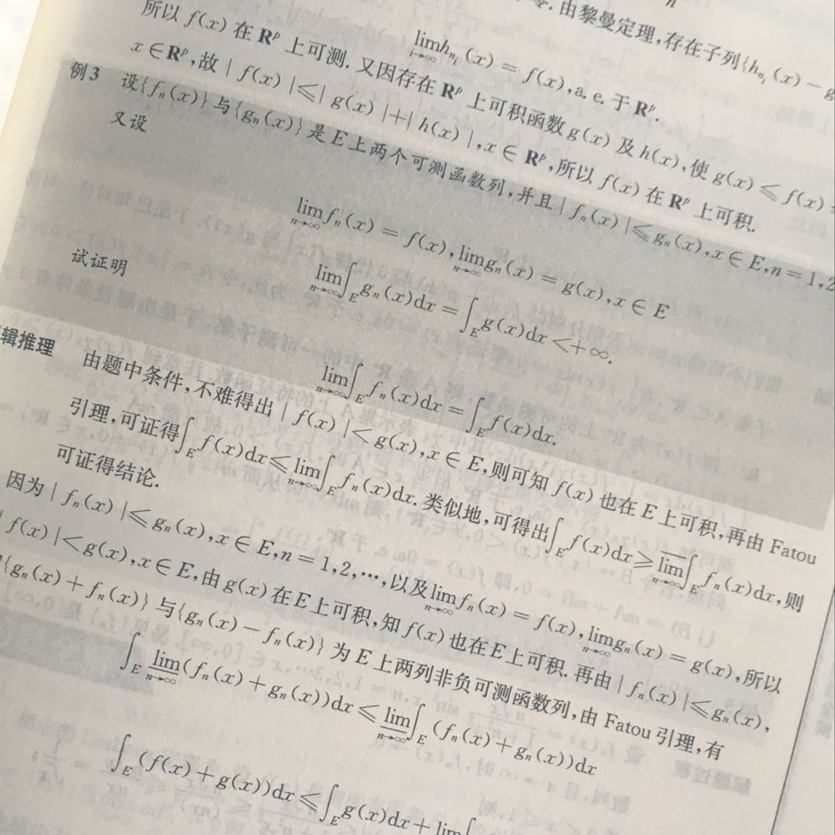 由黎曼定理,存在子列{h_{n_i}(x)-g
lim_{i→∞} h_{n_i}(x)=f(x),a.e.于R^p.
所以f(x)在R^p上可测.又因存在R^p上可积函数g(x)及h(x),使g(x)≤f(x)≤
x∈R^p,故|f(x)|≤|g(x)|+|h(x)|,x∈R^p,所以f(x)在R^p上可积.
例3 设{f_n(x)}与{g_n(x)}是E上两个可测函数列,并且|f_n(x)|≤g_n(x),x∈E,n=1,2
又设
lim_{n→∞} f_n(x)=f(x),lim_{n→∞} g_n(x)=g(x),x∈E
lim_{n→∞}∫_E g_n(x)dx=∫_E g(x)dx<+∞.
试证明
lim_{n→∞}∫_E f_n(x)dx=∫_E f(x)dx.
辑推理 由题中条件,不难得出|f(x)|<g(x),x∈E,则可知f(x)也在E上可积,再由Fatou
引理,可证得∫_E f(x)dx≤\underline{lim}_{n→∞}∫_E f_n(x)dx.类似地,可得出∫_E f(x)dx≥\overline{lim}_{n→∞}∫_E f_n(x)dx,则
可证得结论.
因为|f_n(x)|≤g_n(x),x∈E,n=1,2,…,以及lim_{n→∞} f_n(x)=f(x),lim_{n→∞} g_n(x)=g(x),所以
f(x)|<g(x),x∈E,由g(x)在E上可积,知f(x)也在E上可积.再由|f_n(x)|≤g_n(x),
{g_n(x)+f_n(x)}与{g_n(x)-f_n(x)}为E上两列非负可测函数列,由Fatou引理,有
∫_E \underline{lim}_{n→∞}(f_n(x)+g_n(x))dx≤\underline{lim}_{n→∞}∫_E(f_n(x)+g_n(x))dx
∫_E(f(x)+g(x))dx≤∫_E g(x)dx+lim∫